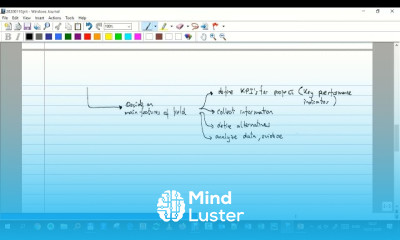 Windows Journal
File Edit View Insert Actions Tools Help
define KPI's for project (key performance
indicator)
Decide on
main features of field
collect information
define alternatives
analyze data,
Mind
Luster